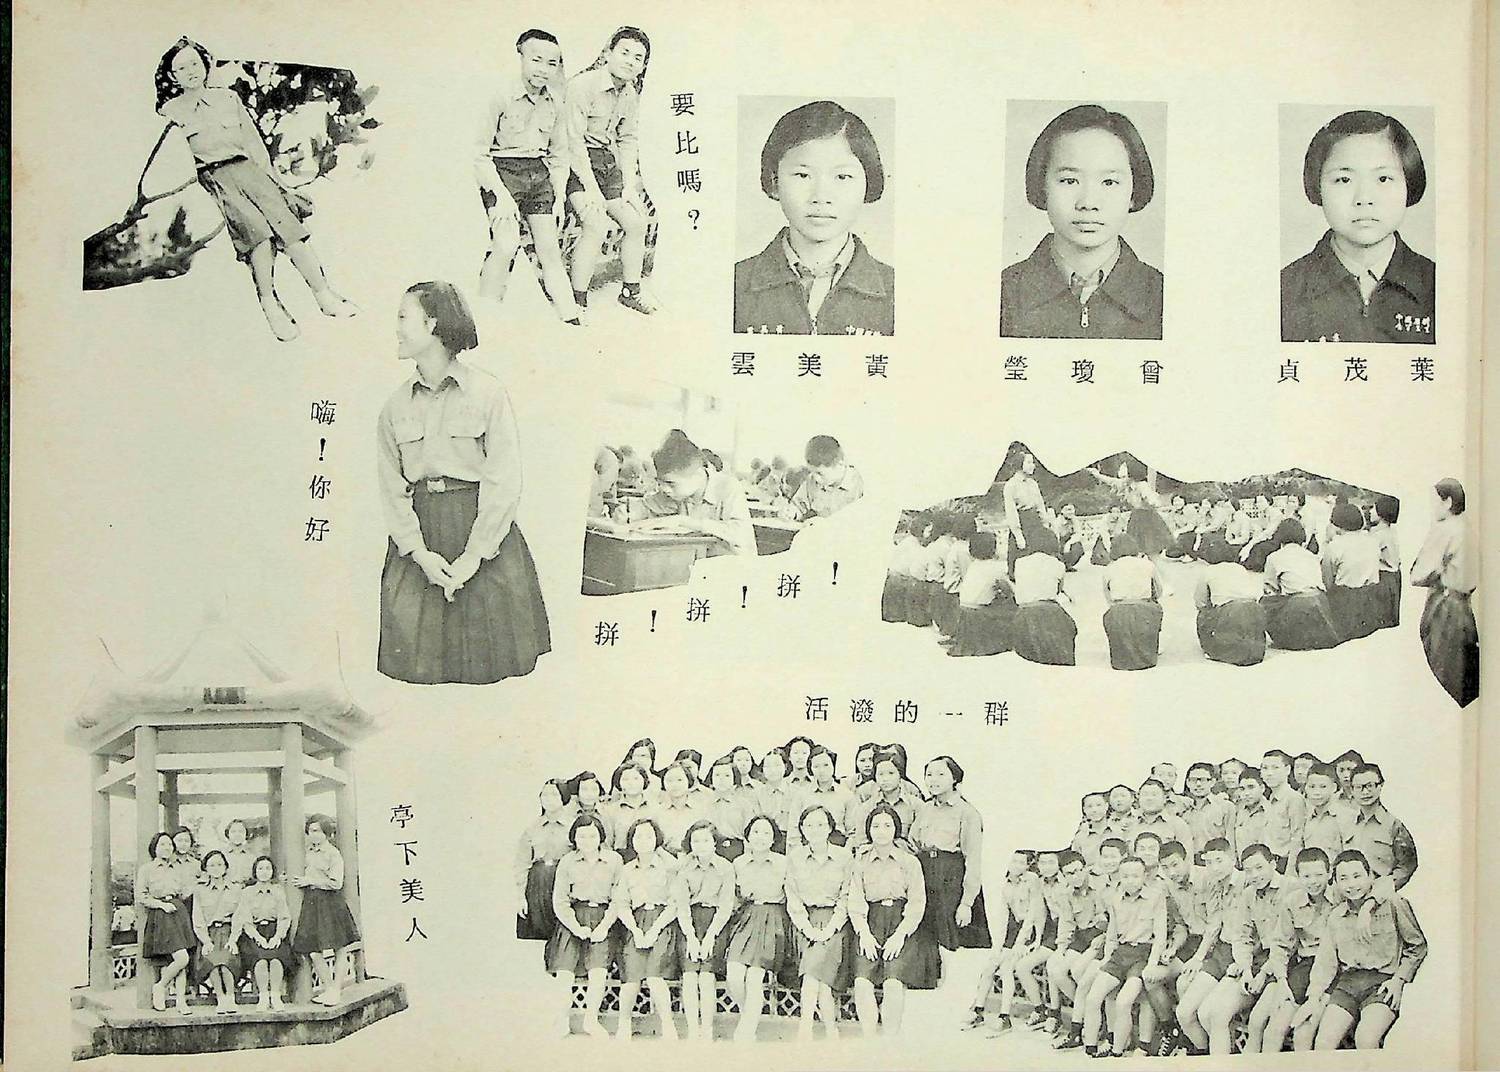 要比嗎?
雲美黃
瑩瓊曾
貞茂葉
嗨!你好
拼!拼!拼!
活潑的一群
亭下美人